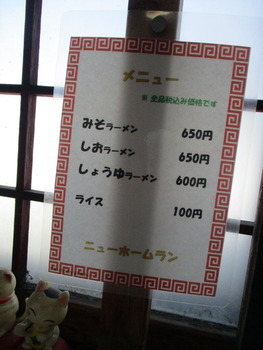 メニュー
※ 全品税込み価格です
みそラーメン 650円
しおラーメン 650円
しょうゆラーメン 600円
ライス 100円
ニューホームラン